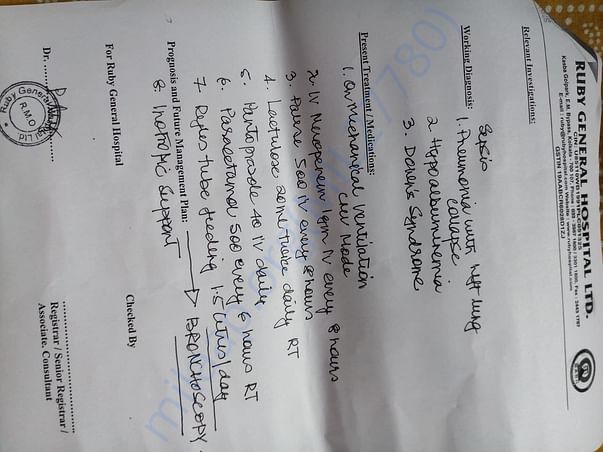 RUBY GENERAL HOSPITAL LTD.
Kasba Golpark, E.M. Bypass, Kolkata - 700 107, Phone :
E-mail : ruby@rubyhospital.com Website : www.rubyhospital.com
Relevant Investigations:
Working Diagnosis:
Sepsis
1. Pneumonia with left lung
collapse
2 Hypoalbuminemia
3. Down's Syndrome
Present Treatment / Medications:
1. On Mechanical Ventilation
CMV Mode
2. IV Meropenem 1gm IV every 8 hours
3. 500 IV every 8 hours
4. Lactulose 20ml twice daily RT
5. Pantoprazole 40 IV daily
6. Paracetamol 500 every 6 hours RT
7. Ryles tube feeding 1.5 litres/day
Prognosis and Future Management Plan: → BRONCHOSCOPY
8. Inotropic Support
For Ruby General Hospital
Checked By
Dr.
Ruby General Hospital Ltd
R.M.O
Registrar / Senior Registrar /
Associate. Consultant